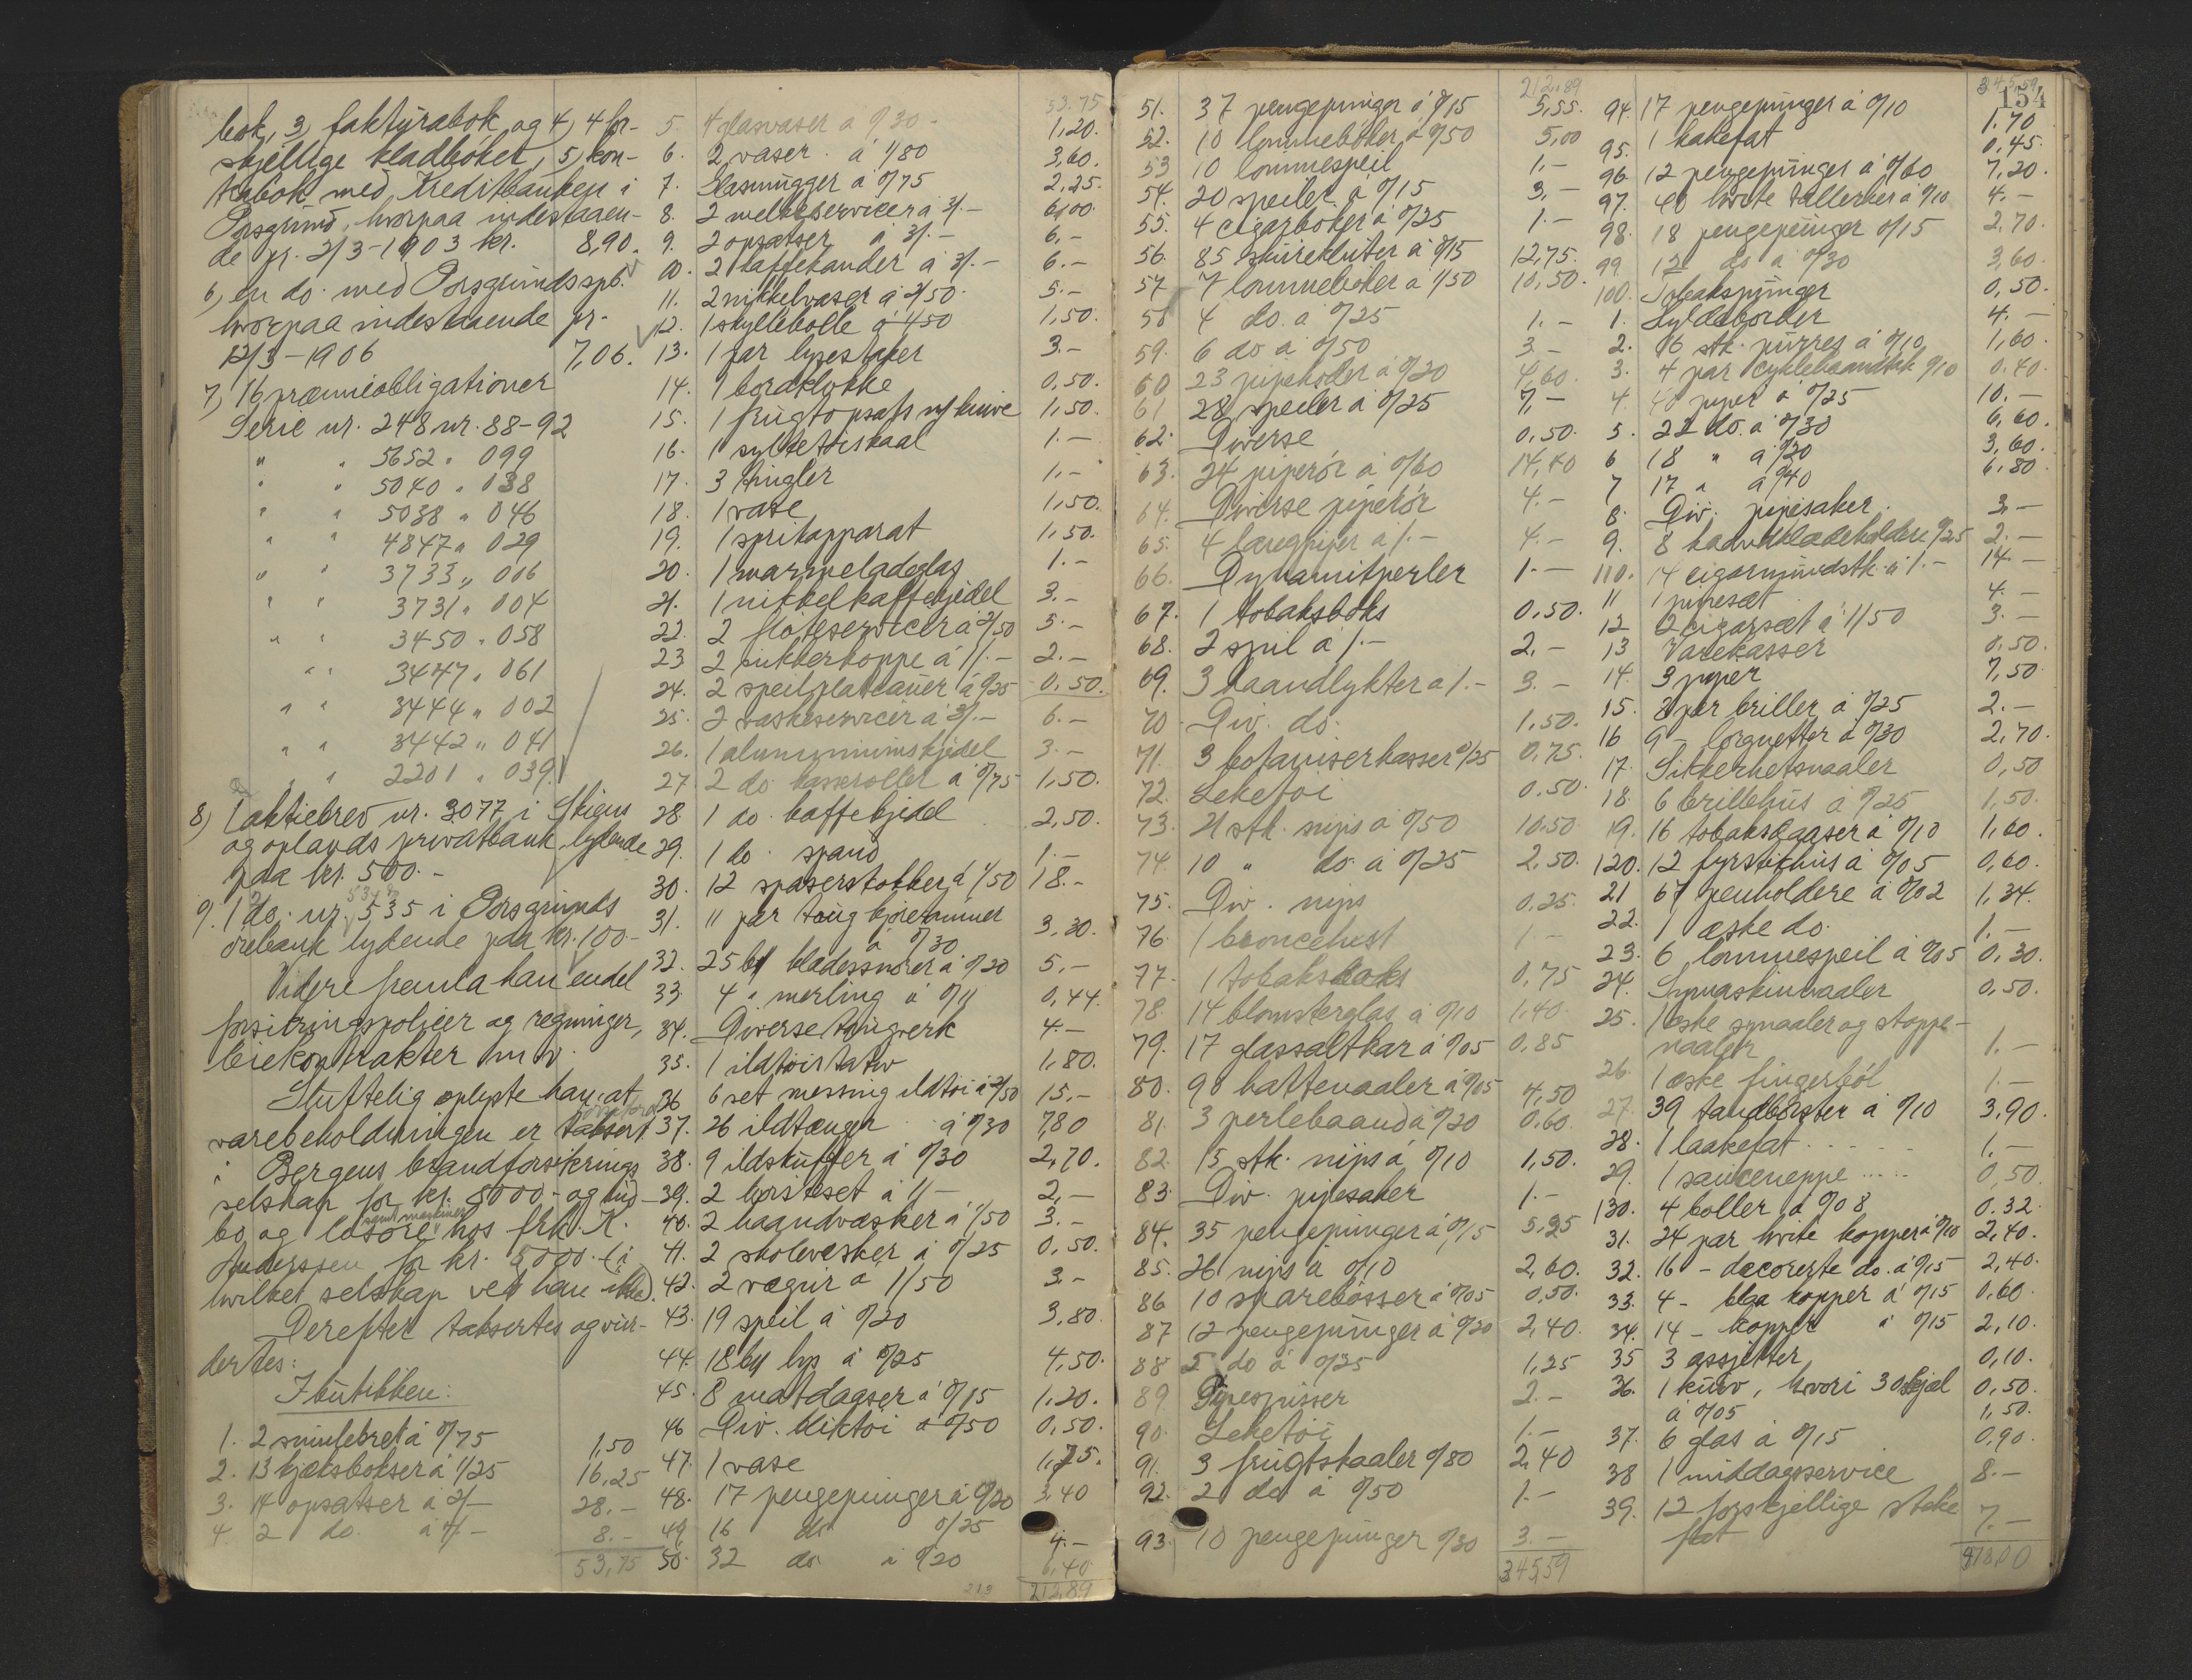 bok, 3, fakturabok og 4, 4 for-
skjellige kladbøker, 5, kon-
trabok med Kreditbanken i
Porsgrund, hvorpaa indestaaen-
de pr. 2/3-1903 kr. 8,90.
6, en do. med Porsgrunds spb.
hvorpaa indestaaende pr.
12/3-1906 7,06.
7, 16 præmieobligationer
Serie nr. 248 nr. 88-92
" " 5652 " 099
" " 5040 " 038
" " 5038 " 046
" " 4847 " 029
" " 3733 " 006
" " 3731 " 004
" " 3450 " 058
" " 3447 " 061
" " 3444 " 002
" " 3442 " 041
" " 2201 " 039
8) 1 aktiebrev nr. 3077 i Skiens
og oplands privatbank lydende
paa kr. 500.-
9. 1 do. nr. 535 i Porsgrunds
lydende paa kr. 100.-
Videre hau endel
og regninger,
leiekontrakter m.v.
Sluttelig oplyste han at
varebeholdningen er
i Bergens brandforsikrings
selskap for kr. 8000.- og ind-
bo og løsøre samt maskiner hos frk. K.
Anderssen for kr. 5,000.- (i
hvilket selskap ved han ikke).
Derefter taksertes og vur-
dertes:
I butikken:
1. 2 smørebret á 0/75 1,50
2. 13 kjæksbokser á 1/25 16,25
3. 14 opsatser á 2/- 28.-
4. 2 do. á 4/- 8.-
53,75
53.75
5. 4 glasvaser a 0/30 - 1,20.
6. 2 vaser á 1/80 3,60.
7. Glasmugger á 0/75 2,25.
8. 2 melkeservicer á 3/.- 6,00.
9. 2 opsatser á 3/.- 6,-
10. 2 kaffekander á 3/.- 6.-
11. 2 nikkelvaser á 2/50 5.-
12. 1 skyllebolle á 1,50.
13. 1 par lysestaker 3.-
14. 1 bordklokke 0,50.
15. 1 frugtopsats m/ knive 1,50.
16. 1 syltetøiskaal 1.-
17. 3 kugler 1,-
18. 1 vase 1,50.
19. 1 spritapparat 1,50.
20. 1 marmeladeglas 1.-
21. 1 nikkelkaffekjedel 3.-
22. 2 fløteservicer á 2/50 5.-
23 2 sukkerkoppe á 1/.- 2.-
24. 2 speilplateauer á 0/25 0,50.
25. 2 vaskeservicer á 3/.- 6.-
26. 1 aluminiumskjedel 3.-
27. 2 do kasseroller á 0/75 1,50.
28. 1 do. kaffekjedel 2,50.
29. 1 do. spand 1.-
30. 12 spaserstokker á 1/50 18.-
31. 11 par taug
á 0/30 3,30.
32. 25 bt klædessnører á 0/20 5.-
33 4 " merling á 0/11 0,44.
34. Diverse taugverk 4.-
35. 1 ildtøistativ 1,80.
36 6 set messing ildtøi á 2/50 15.-
37. 26 ildtænger á 0/30 7,80
38. 9 ildskuffer á 0/30 2,70.
39. 2 børsteset á 1/- 2,-
40. 2 haandvæsker á 1/50 3.-
41. 2 skolevæsker á 0/25 0,50.
42. 2 vægur á 1/50 3.-
43. 19 speil á 0/20 3,80.
44. 18 bt lys á 0/25 4,50.
45. 8 matdaaser á 0/15 1,20.
46 Div. bliktøi á 0/50 0,50.
47. 1 vase 1,75.
48. 17 pengepunger á 0/20 3,40
49. 16 do 0/25 4.-
50. 32 do á 0/20 6,40
213 212,89
212,89
51. 37 pengepunger á 0/15 5,55.
52. 10 lommebøker á 0/50 5,00
53 10 lommespeil 1.-
54. 20 speiler á 0/15 3,-
55. 4 cigarbøker á 0/25 1.-
56. 85 skurekluter á 0/15 12,75.
57 7 lommebøker á 1/50 10,50.
58 4 do. a 0/25 1.-
59. 6 do á 0/50 3.-
60 23 pipehoder á 0/20 4,60.
61 28 speiler á 0/25 7,-
62. Diverse 0,50.
63. 24 piperør á 0/60 14,40
64. Diverse piperør 4.-
65. 4 lægpiper á 1.- 4.-
66. Dynamitperler 1.-
67. 1 tobaksboks 0,50.
68. 2 spil á 1.- 2.-
69. 3 haandlykter a 1.- 3.-
70 Div. do. 1,50.
71. 3 botaniserkasser 0/25 0,75.
72. Leketøi 0.50.
73. 21 stk. nips á 0/50 10.50
74. 10 " do. á 0/25 2,50.
75. Div. nips 0,25.
76. 1 broncehest 1.-
77. 1 tobaksboks 0,75
78. 14 blomsterglas á 0/10 1,40.
79. 17 glassaltkar á 0/05 0,85
80. 90 hattenaaler á 0/05 4,50
81. 3 perlebaand á 0/20 0,60.
82. 15 stk. nips á 0/10 1,50.
83. Div. pipesaker 1.-
84. 35 pengepunger á 0/15 5,25
85. 26 nips á 0/10 2,60.
86 10 sparebøsser á 0/05 0,50.
87 12 pengepunger á 0/20 2,40.
88 5 do á 0/25 1,25
89. Pipespisser 2.-
90. Leketøi 1.-
91. 3 frugtskaaler 0/80 2,40
92. 2 do á 0/50 1.-
93. 10 pengepunger 0/30 3.-
345,59
345,59
154
94. 17 pengepunger á 0/10 1.70
95. 1 kakefat 0,45.
96. 12 pengepunger á 0/60 7,20.
97. 40 hvite tallerker á 0/10 4.-
98. 18 pengepunger 0/15 2,70.
99. 12 do á 0/30 3,60.
100. Tobakspunger 0,50.
1. Hyldeborder 4.-
2. 16 stk. á 0/10 1,60.
3. 4 par cyklehaandtak 0/10 0.40.
4. 40 piper á 0/25 10.-
5. 22 do. á 0/30 6,60.
6 18 " á 0/20 3,60.
7 17 " á 0/40 6.80.
8. Div. pipesaker. 3.-
9. 8 haandklædeholdere 0/25 2.-
110. 14 cigarmundstk. á 1.- 14.-
11 1 pipesæt 4.-
12 2 cigarsæt á 1/50 3.-
13 Varekasser 0.50.
14. 3 piper 7,50
15. 8 par briller á 0/25 2.-
16 9 - lorgnetter á 0/30 2,70.
17. Sikkerhetsnaaler 0,50
18. 6 brillehus á 0/25 1,50.
19. 16 tobaksdaaser á 0/10 1,60.
120. 12 fyrstikhus á 0/05 0,60.
21 67 penholdere á 0/02 1,34.
22. 1 æske do. 1.-
23. 6 lommespeil á 0/05 0,30.
24. Symaskinnaaler 0,50.
25. 1 æske synaaler og stoppe-
naaler 1.-
26. 1 æske fingerbøl 1.-
27. 39 tandbørster á 0/10 3,90.
28. 1 laakefat 1.-
29. 1 0,50
130. 4 boller á 0/08 0.32
31. 24 par hvite kopper á 0/10 2,40.
32. 16 - decorerte do. á 0/15 2,40.
33. 4 - blaa kopper á 0/15 0,60.
34. 14 - kopper á 0/15 2,10.
35 3 assjetter 0,10.
36. 1 kurv, hvori 30 0,50.
á 0/05 1,50.
37. 6 glas á 0/15 0,90.
38 1 middagsservice 8.-
39. 12 forskjellige steke
fat 7.-